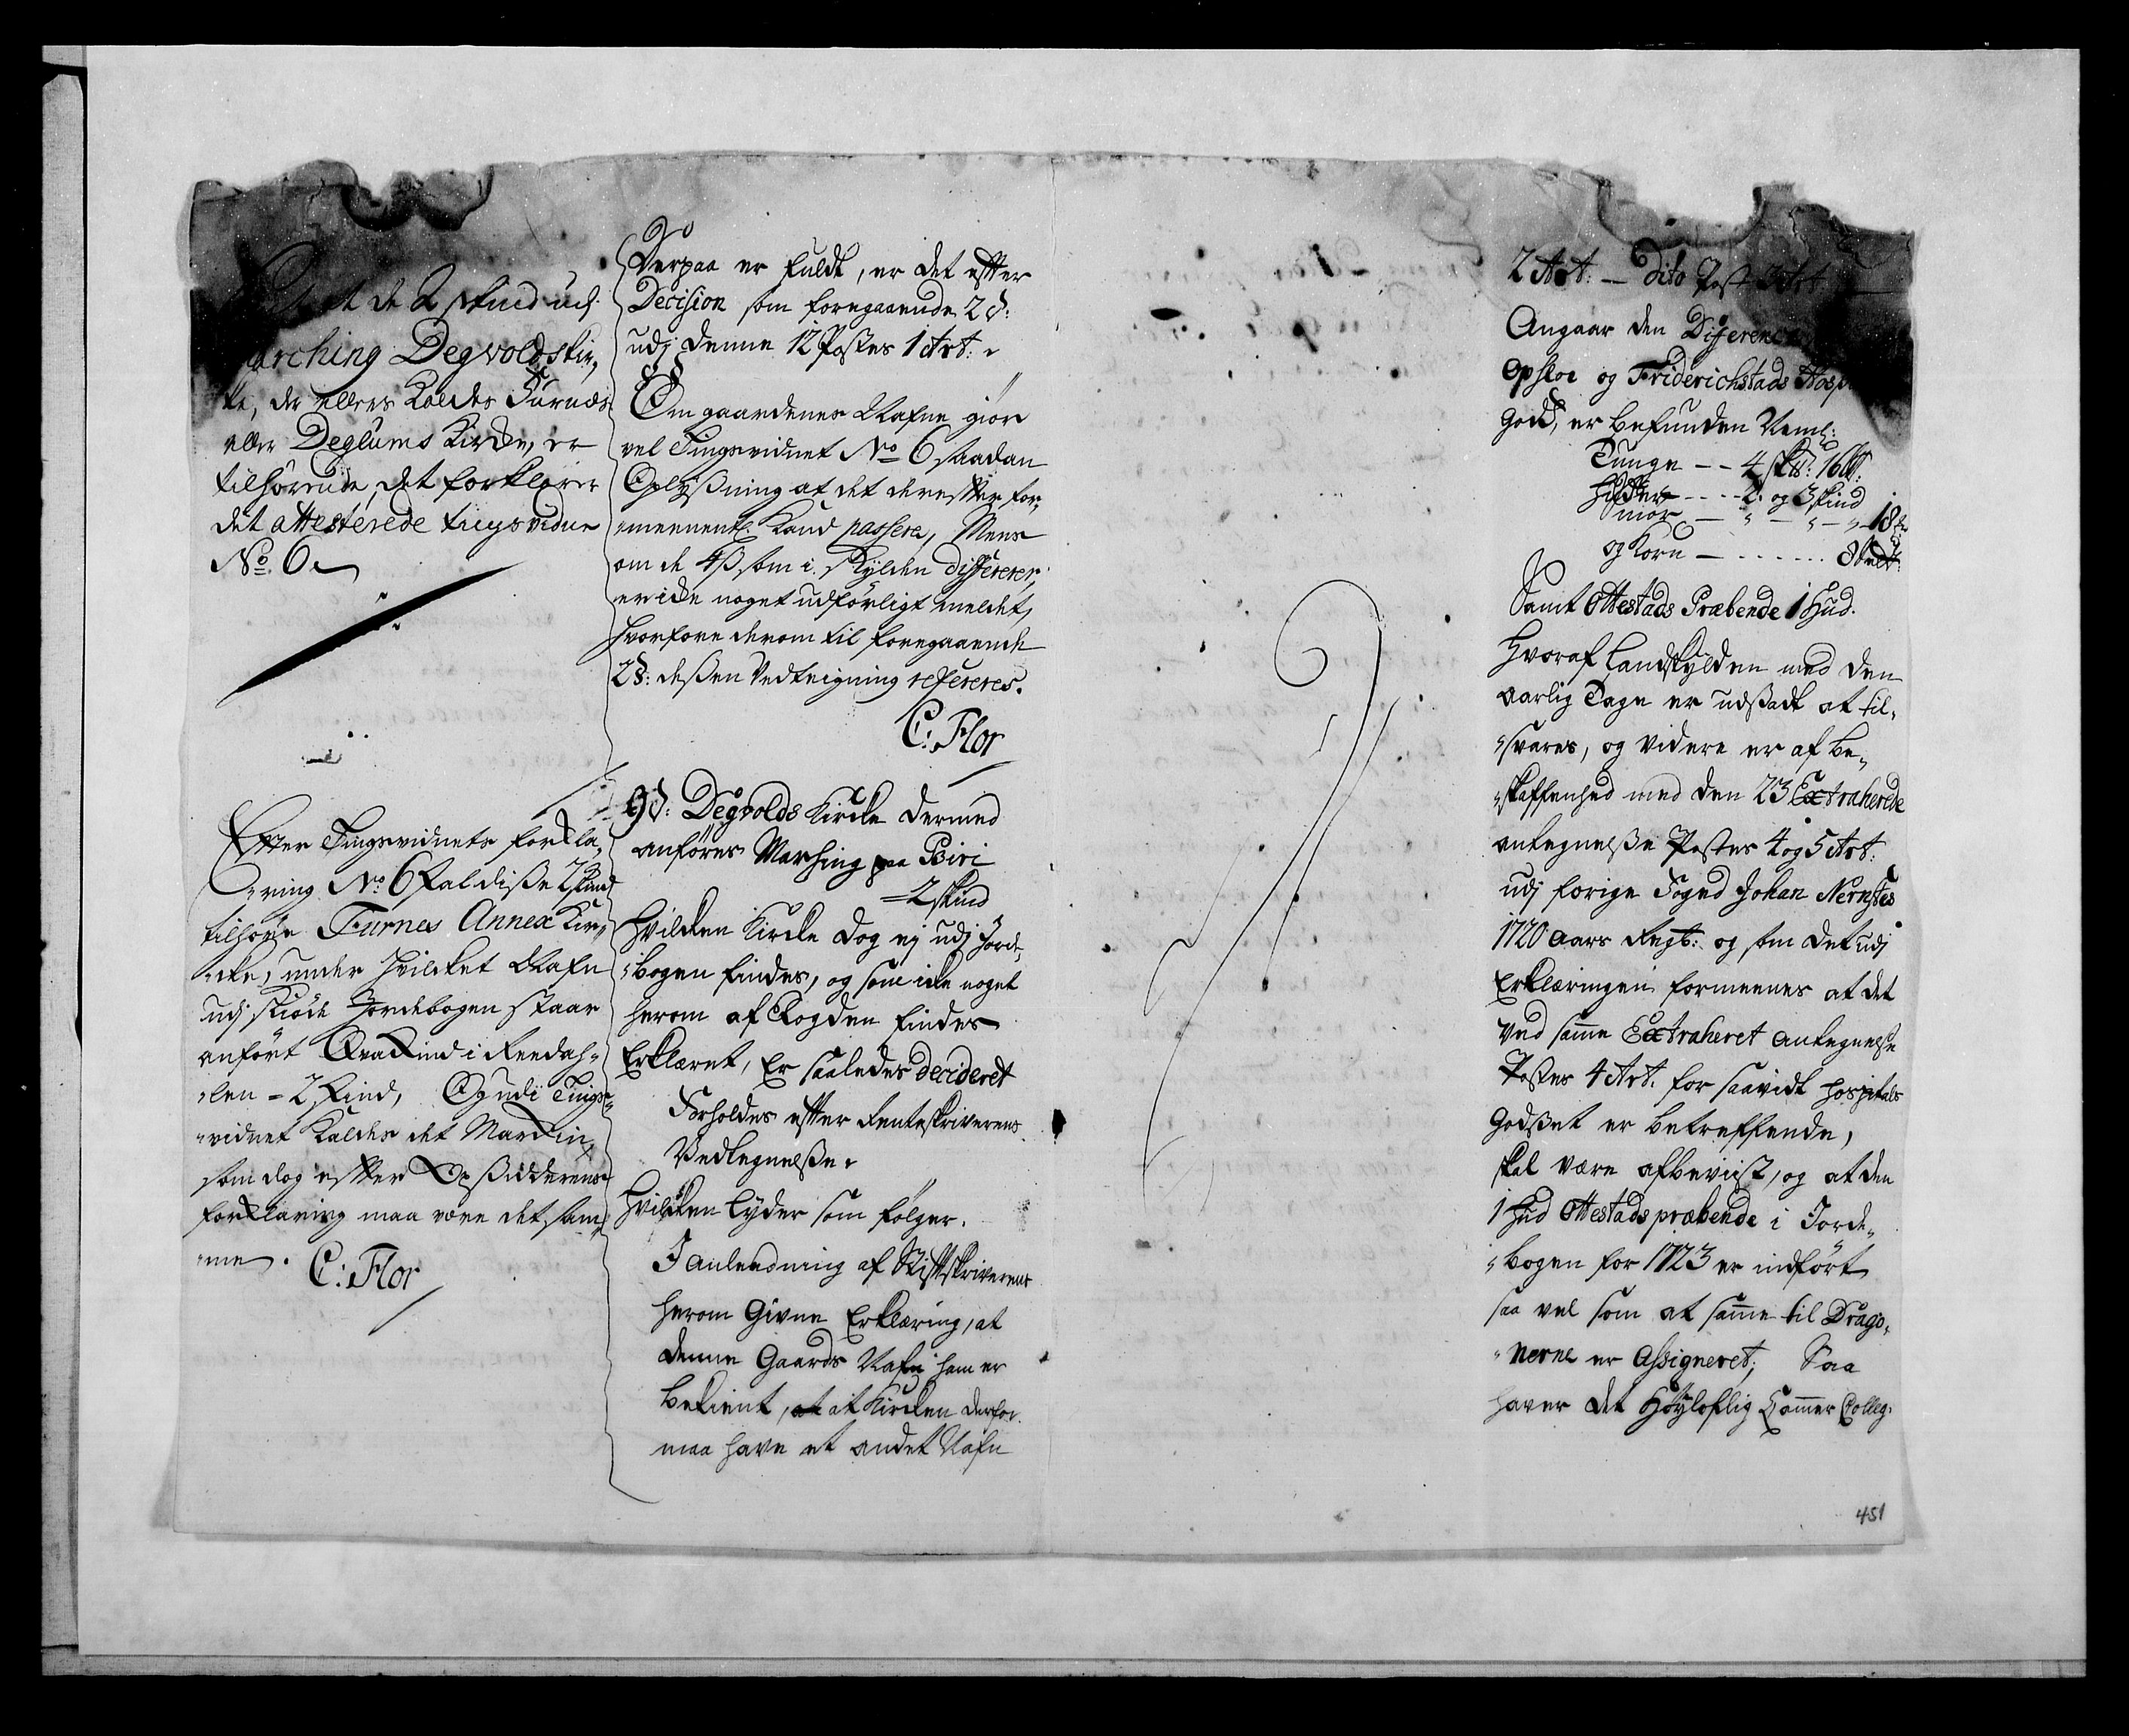 at de 2 skind udj
Marching Degvoldskir„
ke, der ellers Kaldes Furnæs
eller Deglums Kirke, er
tilhörende, det forklarer
det attesterede tingsvidne
No. 6
Efter Tingsvidnets forkla„
„ring No. 6 skal disse 2 skind
tilhøre Furnes Annex Kir„
„cke, under hvilcket Nafn
udj skiöde Jordebogen staar
anført i Reedah„
„len = 2 skind, Og udi Tings„
„vidnet Kaldes det Markin,
som dog efter Opsidderens
forklaring maa være det sam„
„me. C: Flor
Derpaa er fuldt, er det efter
Decision som foregaaende 2 §:
udj denne 12 Postes 1 Art:
Om gaardenes Nafne giør
vel Tingsvidnet No. 6 saadan
Oplysning at det derefter for„
„meenentl: Kand passere, Mens
om de 4 β som i skylden differerer,
er icke noget udførligt meldet,
hvorfore derom til foregaaende
2 §: dessen Vedteigning refereres.
C: Flor
9 §: Degvolds Kircke dermed
anføres Marhing paa Biri
= 2 skind
hvilcken Kircke dog ej udj Jorde„
„bogen findes, og som icke noget
herom af Fogden findes
Erklæret, Er saaledes decideret
Forholdes efter Renteskriverens
Vedtegnelsse.
hvilcken lyder som følger.
I anledning af Stiftskriverens
herom Givne Erklæring, at
denne Gaards Nafn ham er
bekient, at Kircken derfor
maa have et andet Nafn
2 Art: — Dito Post 3 Art.
Angaar den Differenc
Opsloe og Friderichstads Hosp
Godz, er befunden Neml:
Tunge — — 4 sk℔: 16 ℔:
Huder - - - - 2. og 3 skind
Smør — „ — „ — „ — 18
og Korn — . . . . . . .
Samt Ottestads Præbende 1 Hud.
Hvoraf Landskylden med den
aarlig Tage er udsadt at til„
„svares, og videre er af be„
„skaffenhed med den 23 Extraherede
antegnelsse Postes 4 og 5 Art:
udj forige Foged Johan Nernstes
1720 aars Regt: og som det udj
Erklæringen formeenes at det
ved samme Extraheret antegnelse
Postes 4 Art. for saavidt hospitals
Godset er betreffende,
skal være afbeviist, og at den
1 Hud Ottestads præbende i Jorde„
„bogen for 1723 er indført
saa vel som at samme til Drago„
„nerne er Assigneret; Saa
haver det Höyloflig Cammer Colleg:
451